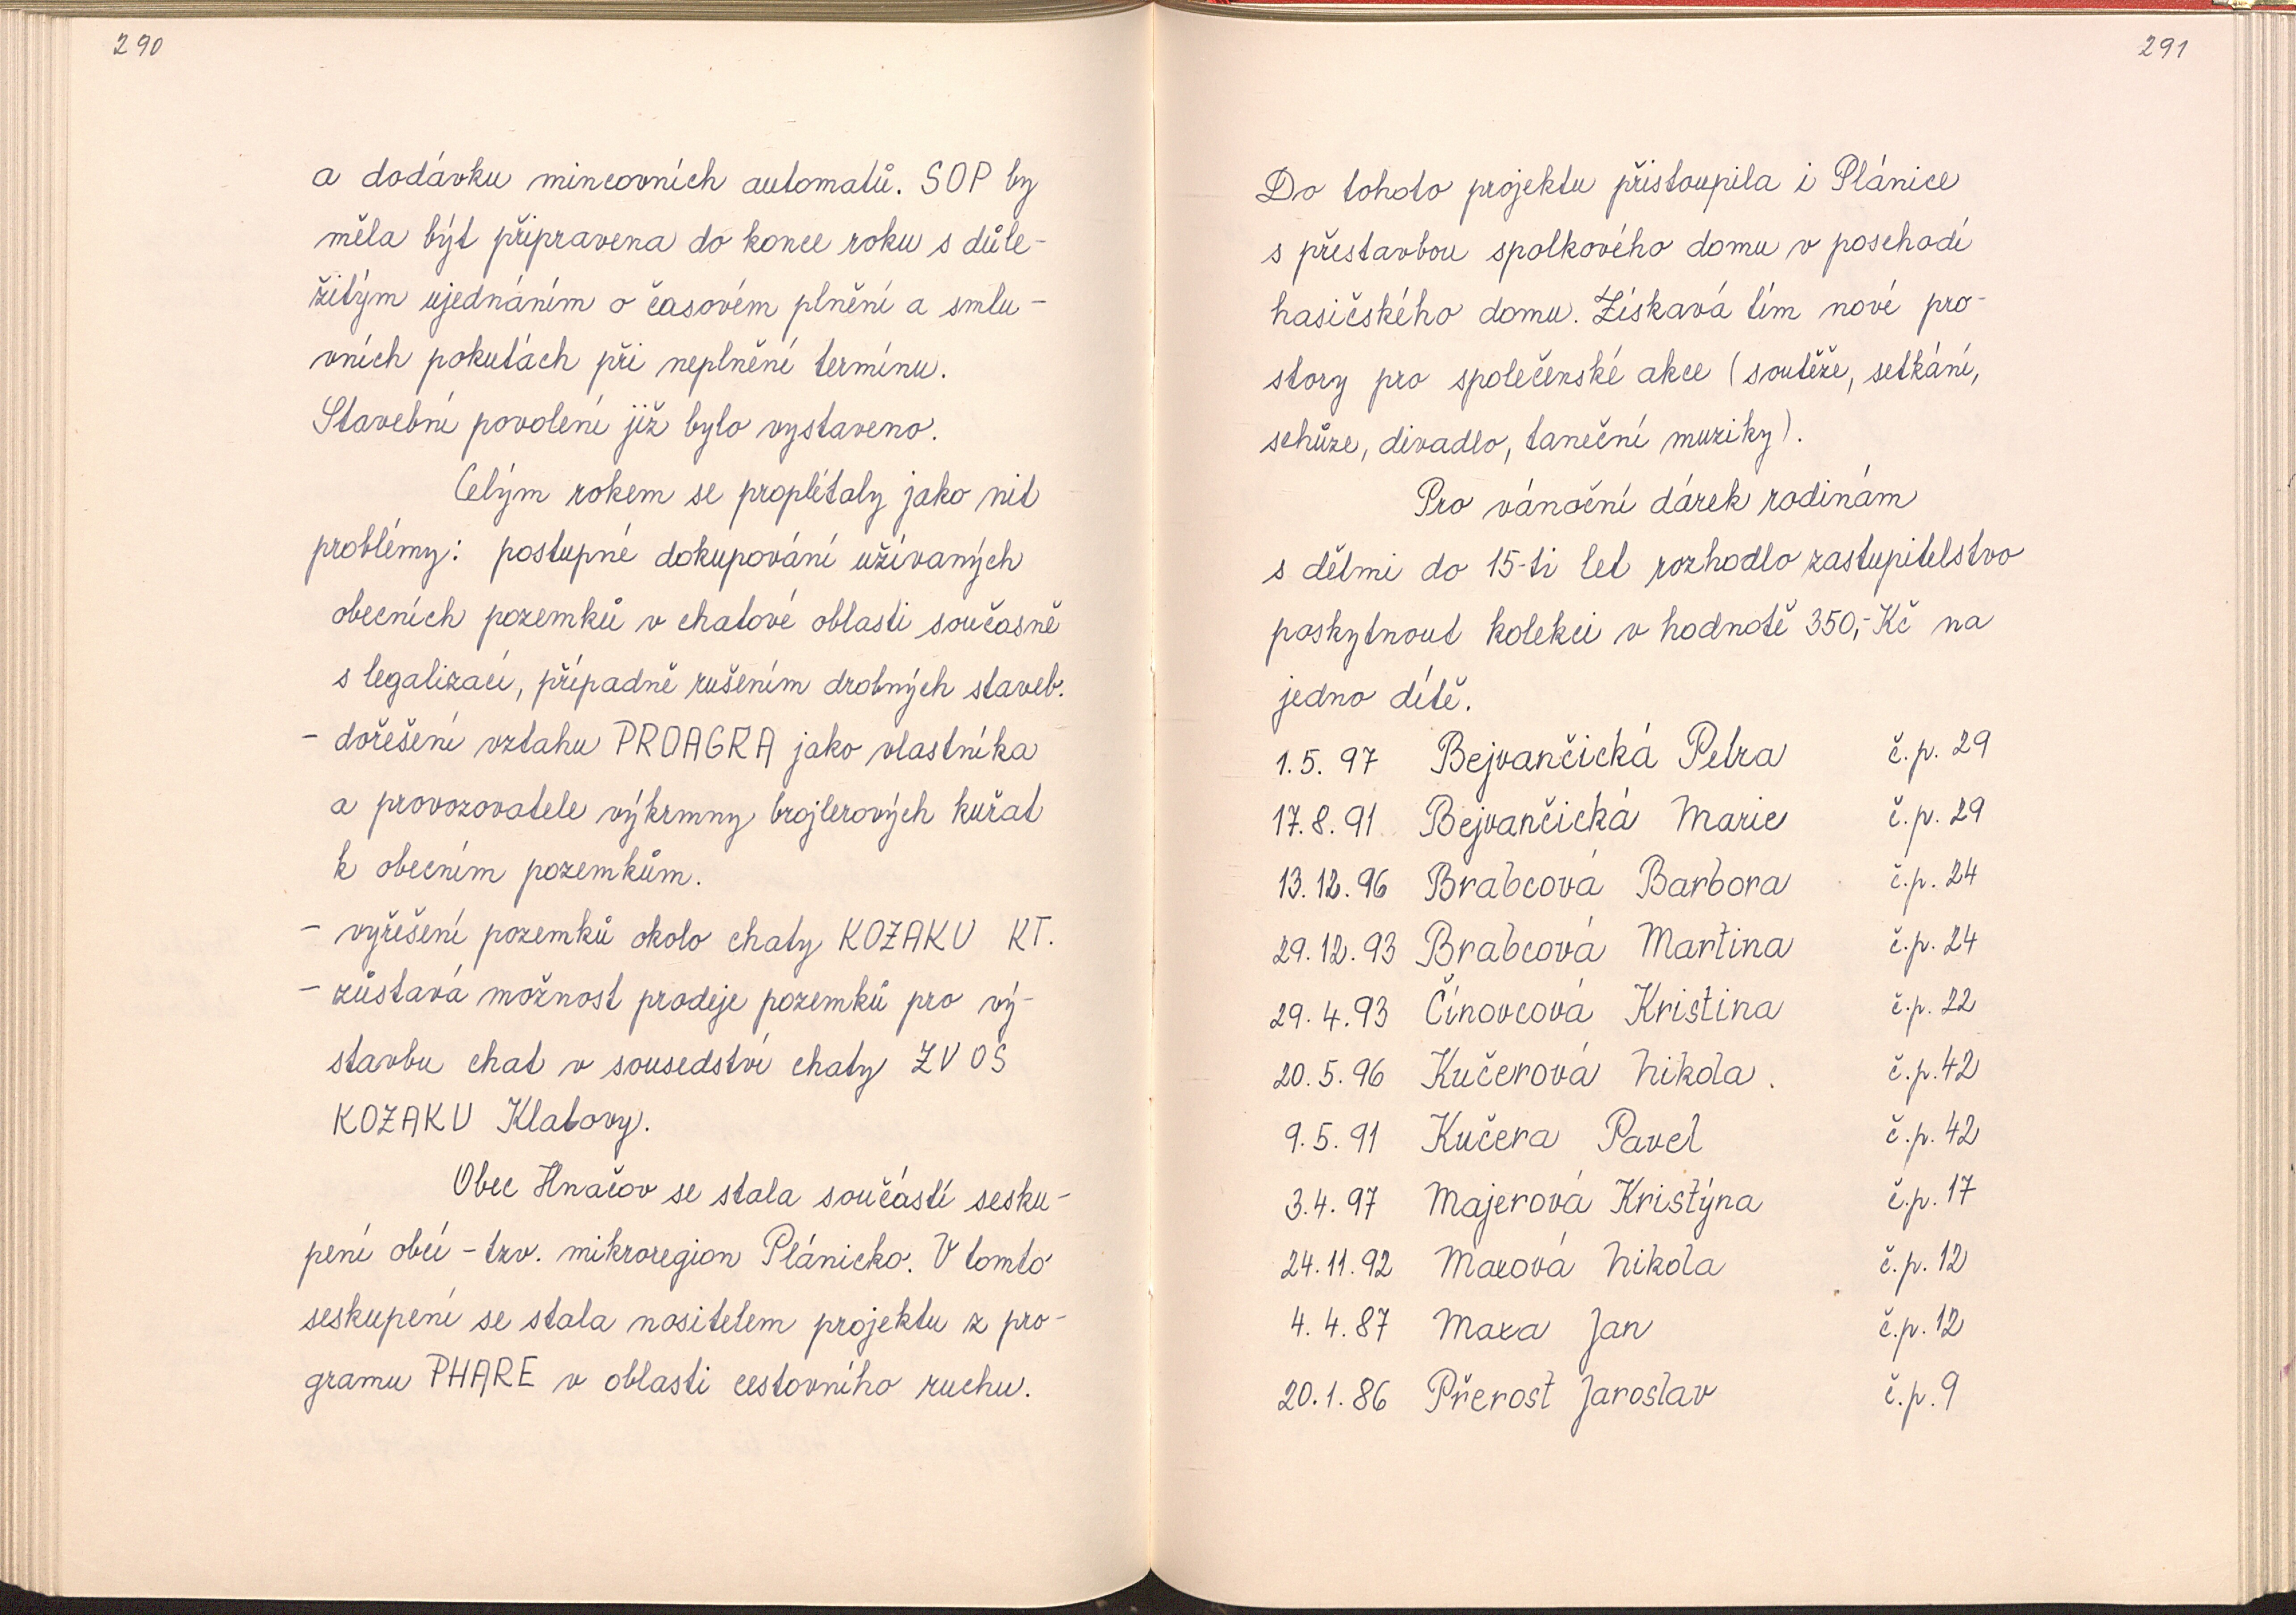 290
a dodávku mincovních automatů. SOP by
měla být připravena do konce roku s důle-
žitým ujednáním o časovém plnění a smlu-
vních pokutách při neplnění termínu.
Stavební povolení již bylo vystaveno.
Celým rokem se proplétaly jako nit
problémy: postupné dokupování užívaných
obecních pozemků v chatové oblasti současně
s legalizací, případně rušením drobných staveb.
- dořešení vztahu PROAGRA jako vlastníka
a provozovatele výkrmny brojlerových kuřat
k obecním pozemkům.
- vyřešení pozemků okolo chaty KOZAKU KT.
- zůstavá možnost prodeje pozemků pro vý-
stavbu chat v sousedství chaty ZV OS
KOZAKU Klatovy.
Obec Hnačov se stala součástí sesku-
pení obcí - tzv. mikroregion Plánicko. V tomto
seskupení se stala nositelem projektu z pro-
gramu PHARE v oblasti cestovního ruchu.
291
Do tohoto projektu přistoupila i Plánice
s přestavbou spolkového domu v poschodí
hasičského domu. Získavá tím nové pro-
story pro společenské akce (soutěže, setkání,
schůze, divadlo, taneční muziky).
Pro vánoční dárek rodinám
s dětmi do 15-ti let rozhodlo zastupitelstvo
poskytnout kolekci v hodnotě 350,- Kč na
jedno dítě.
1. 5. 97 Bejvančická Petra č.p. 29
17. 8. 91 Bejvančická Marie č.p. 29
13. 12. 96 Brabcová Barbora č.p. 24
29. 12. 93 Brabcová Martina č.p. 24
29. 4. 93 Čínovcová Kristina č.p. 22
20. 5. 96 Kučerová Nikola. č.p. 42
9. 5. 91 Kučera Pavel č.p. 42
3. 4. 97 Majerová Kristýna č.p. 17
24. 11. 92 Maxová Nikola č.p. 12
4. 4. 87 Maxa Jan č.p. 12
20. 1. 86 Přerost Jaroslav č.p. 9